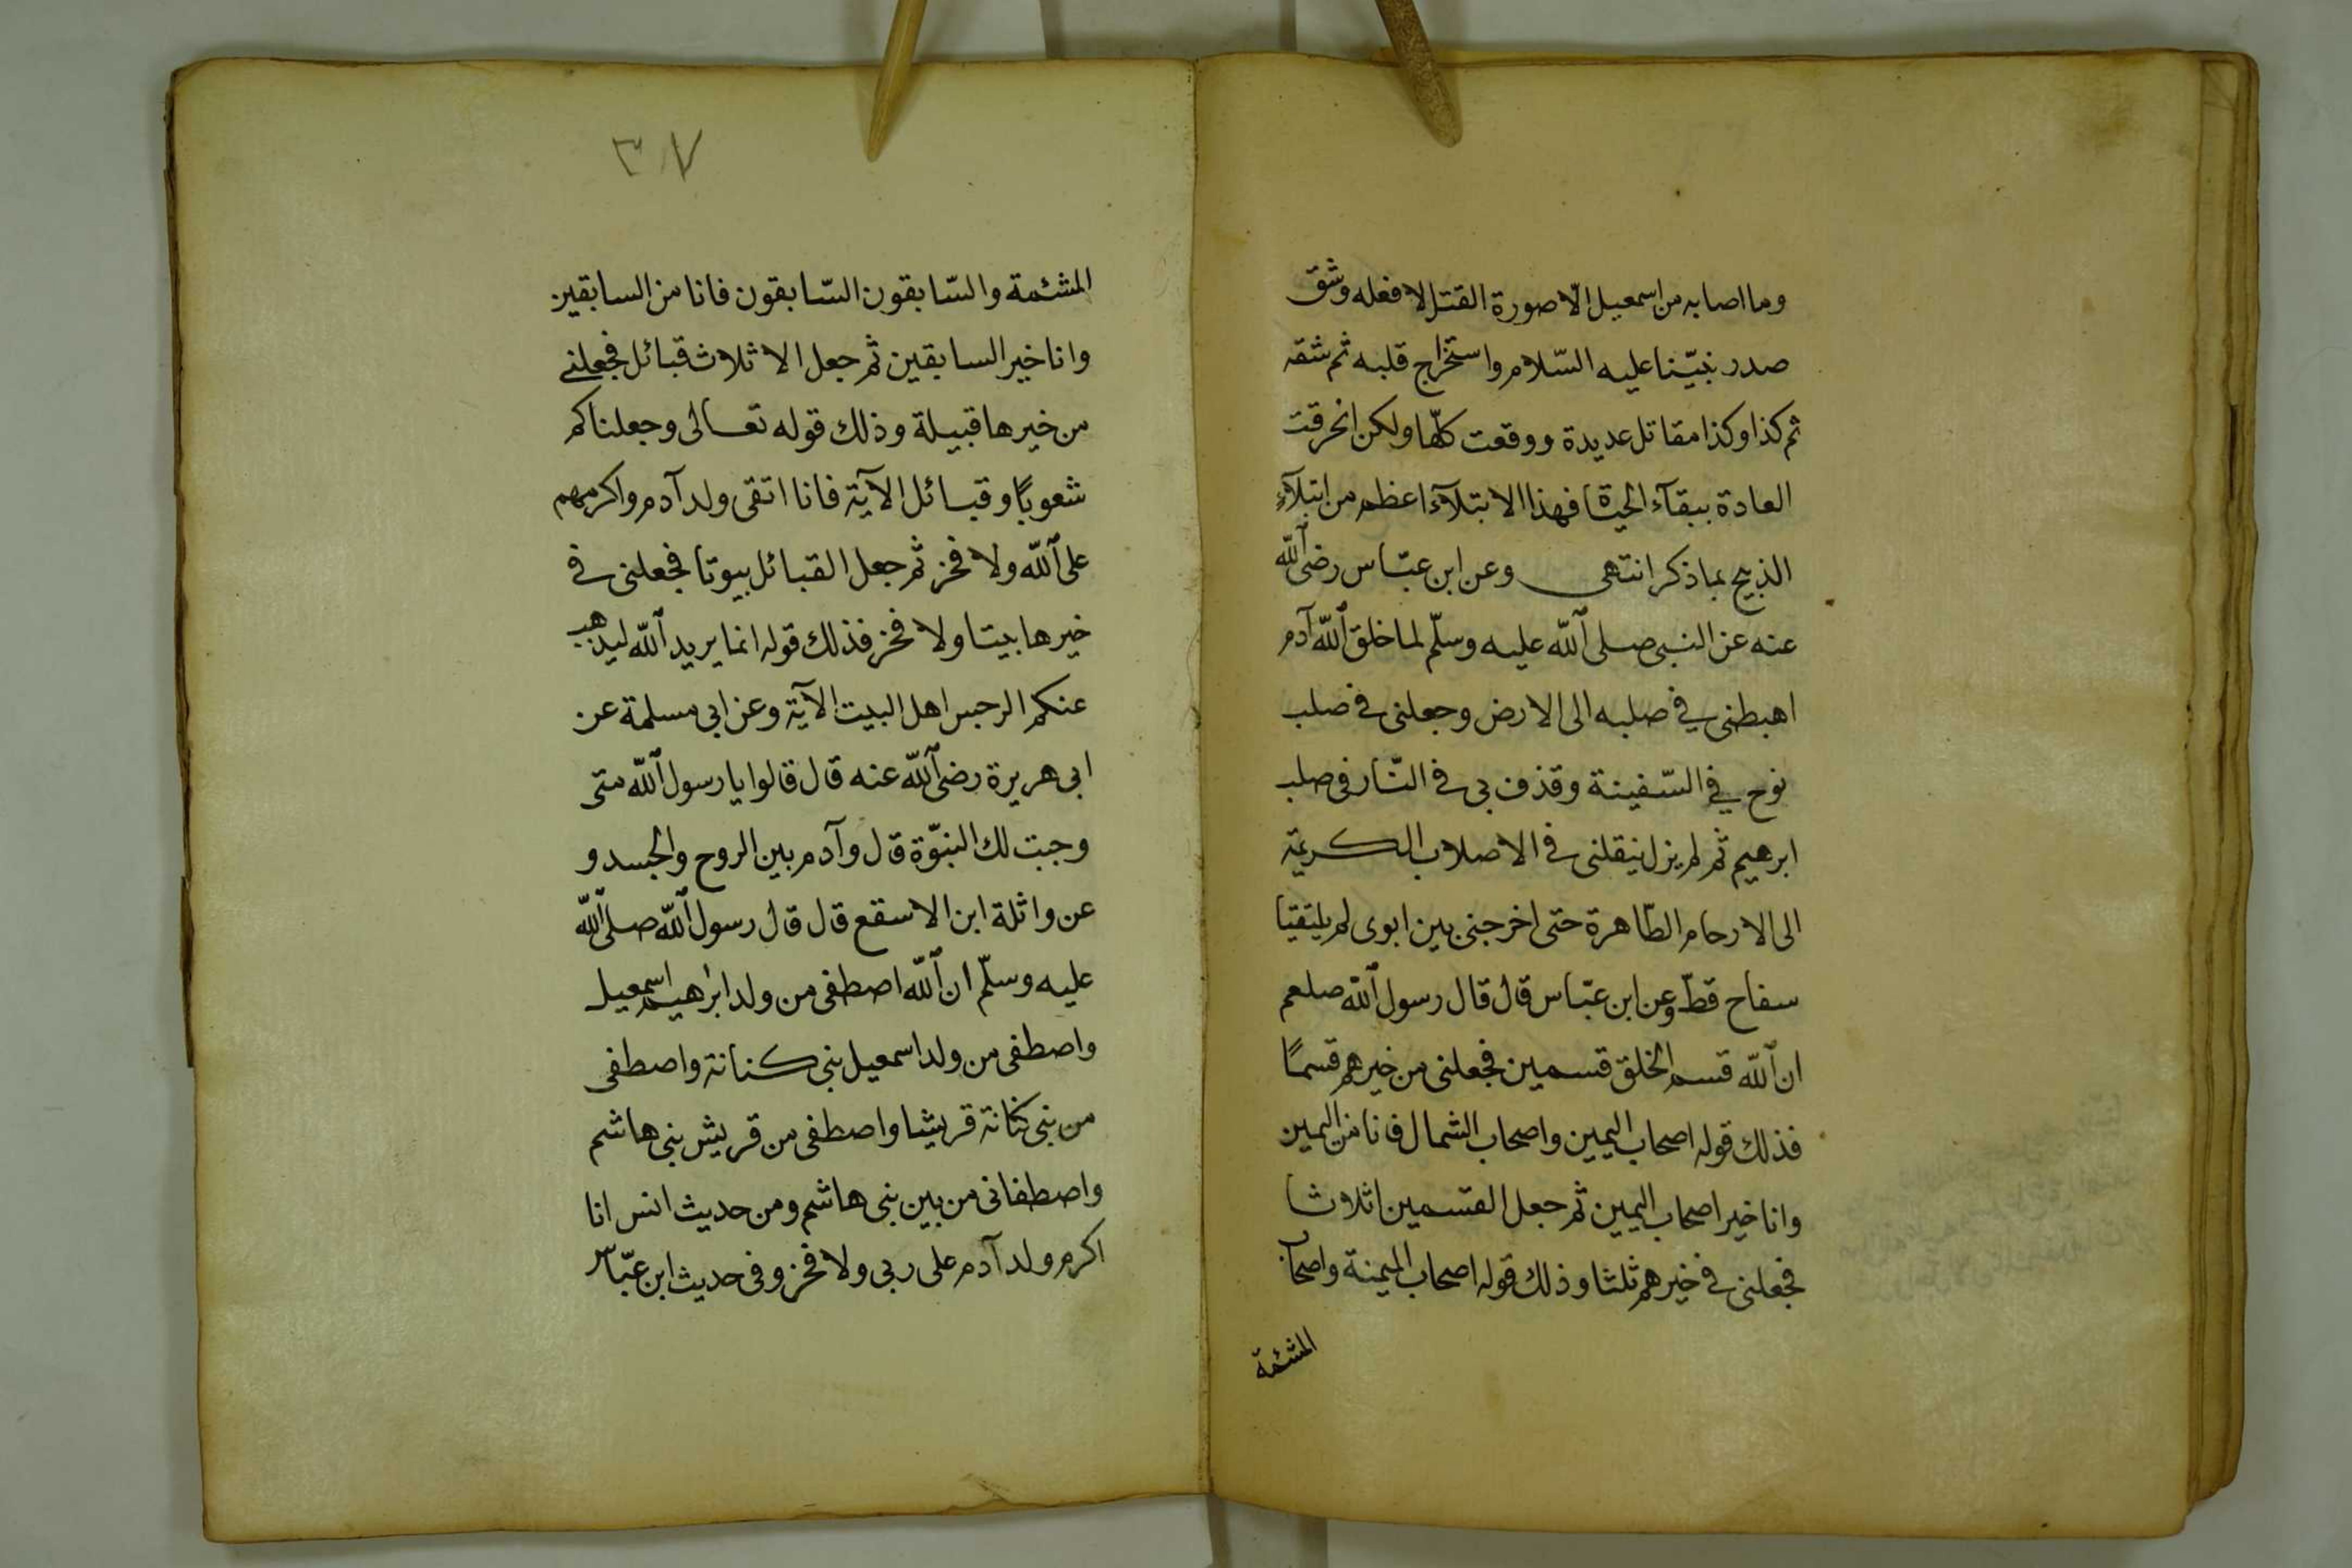 وما اصابه من اسمعيل الّا صورة القتل لا فعله وشق
صدر نبيّنا عليه السّلام واستخراج قلبه ثم شقه
ثم كذا وكذا مقاتل عديدة ووقعت كلّها ولكن انخرقت
العادة ببقآء الحيٰوة فهذا الابتلآء اعظم من ابتلآء
الذبيح بما ذكر انتهى وعن ابن عبّاس رضى الله
عنه عن النبى صلى الله عليه وسلّم لما خلق الله آدم
اهبطنى في صلبه الى الارض وجعلنى في صلب
نوح في السّفينة وقذف بى في النّار فى صلب
ابرهيم ثم لم يزل ينقلنى في الاصلاب الكريمة
الى الارحام الطّاهرة حتى اخرجنى بين ابوى لم يلتقيا
سفاح قطّ وعن ابن عبّاس قال قال رسول الله صلعم
ان الله قسم الخلق قسمين فجعلنى من خيرهم قسمًا
فذلك قوله اصحاب اليمين واصحاب الشمال فانا من اليمين
وانا خير اصحاب اليمين ثم جعل القسمين اثلاثا
فجعلنى في خيرهم ثلثا وذلك قوله اصحاب الميمنة واصحاب
المشئمة
٣٧
المشئمة والسّابقون السّابقون فانا من السابقين
وانا خير السابقين ثم جعل الاثلاث قبائل فجعلنى
من خيرها قبيلة وذلك قوله تعالى وجعلناكم
شعوبًا وقبائل الآية فانا اتقى ولد آدم واكرمهم
على الله ولا فخر ثم جعل القبائل بيوتا فجعلنى في
خيرها بيتا ولا فخر فذلك قوله انما يريد الله ليذهب
عنكم الرجس اهل البيت الآية وعن ابى مسلمة عن
ابى هريرة رضى الله عنه قال قالوا يا رسول الله متى
وجبت لك النبوّة قال وآدم بين الروح والجسد و
عن واثلة ابن الاسقع قال قال رسول الله صلى الله
عليه وسلّم ان الله اصطفى من ولد ابرهيم اسمعيل
واصطفى من ولد اسمعيل بنى كنانة واصطفى
من بنى كنانة قريشا واصطفى من قريش بنى هاشم
واصطفانى من بين بنى هاشم ومن حديث انس انا
اكرم ولد آدم على ربى ولا فخر وفى حديث ابن عبّاس